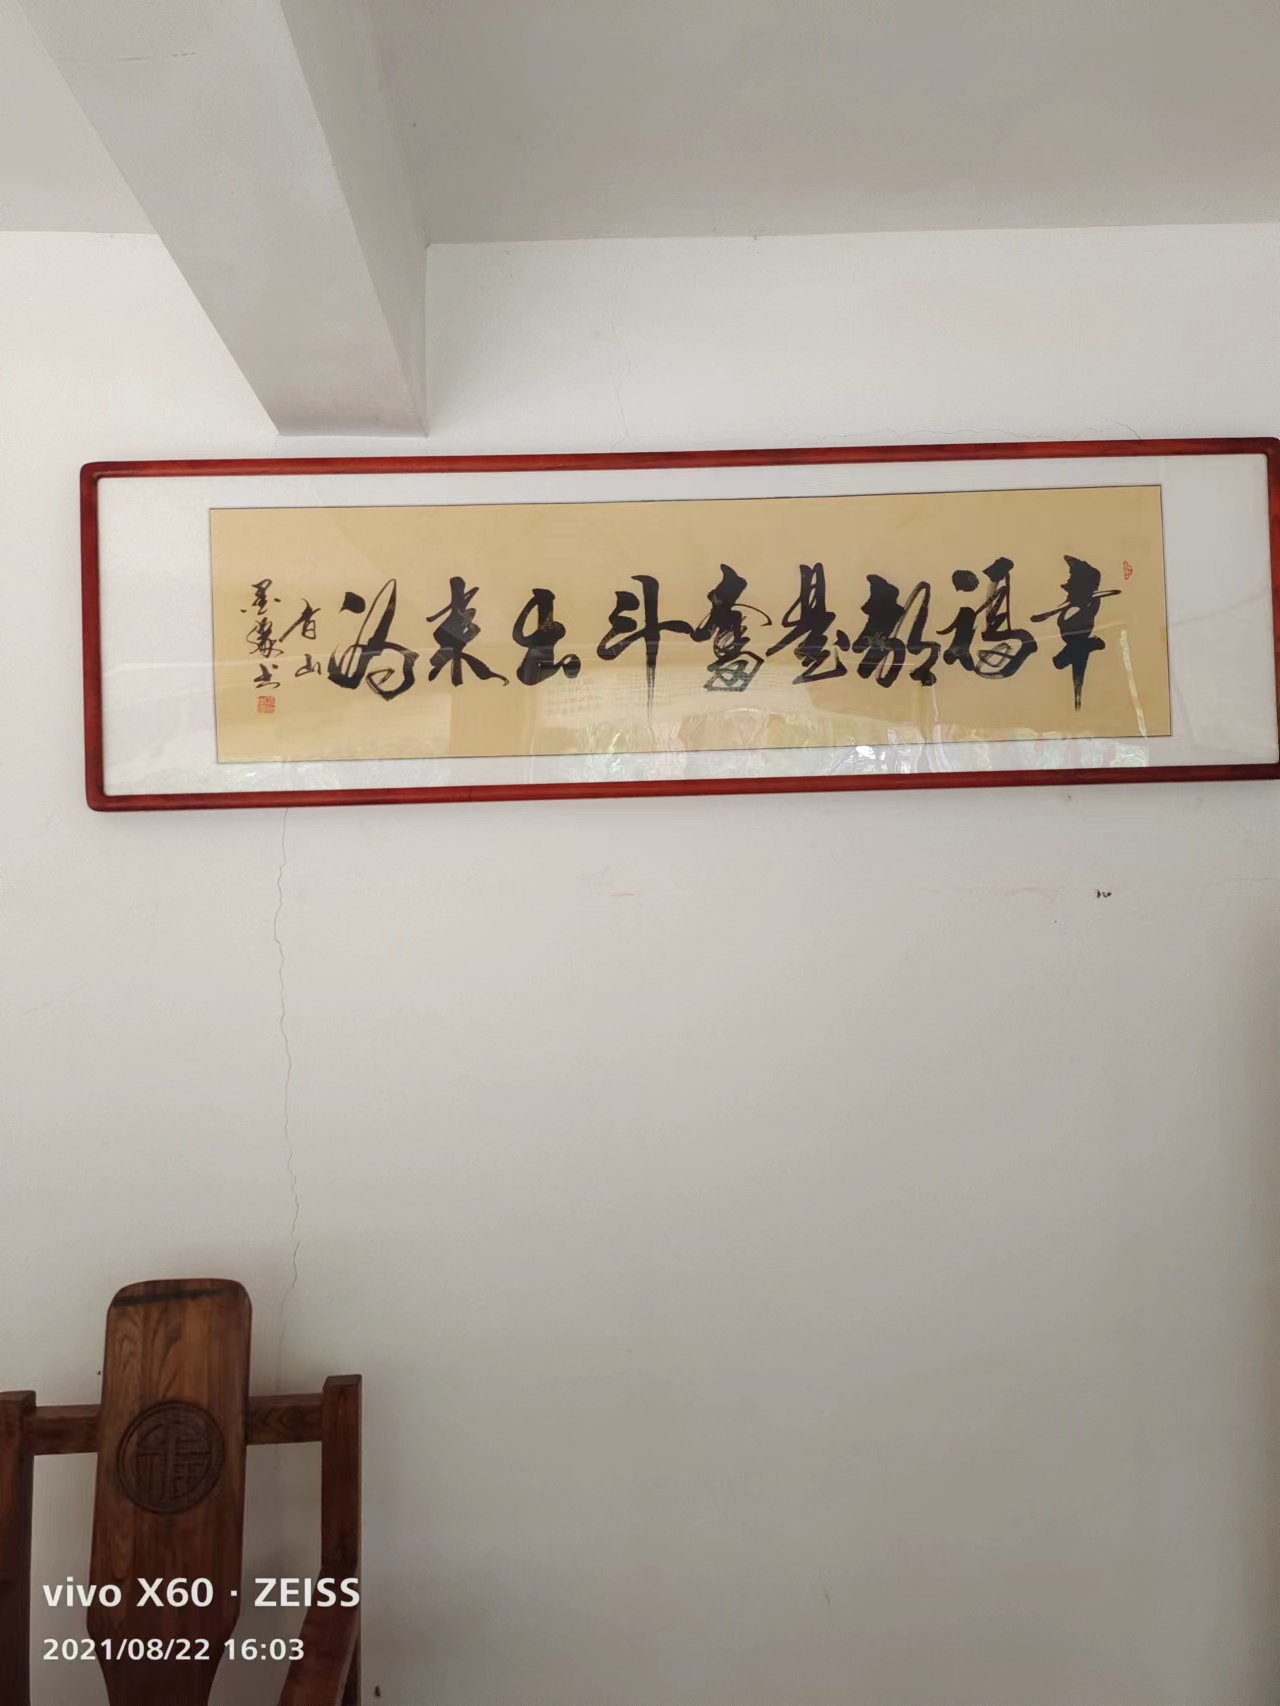 幸福都是奮斗出来的
青山
墨海书
福
vivo X60 · ZEISS
2021/08/22 16:03